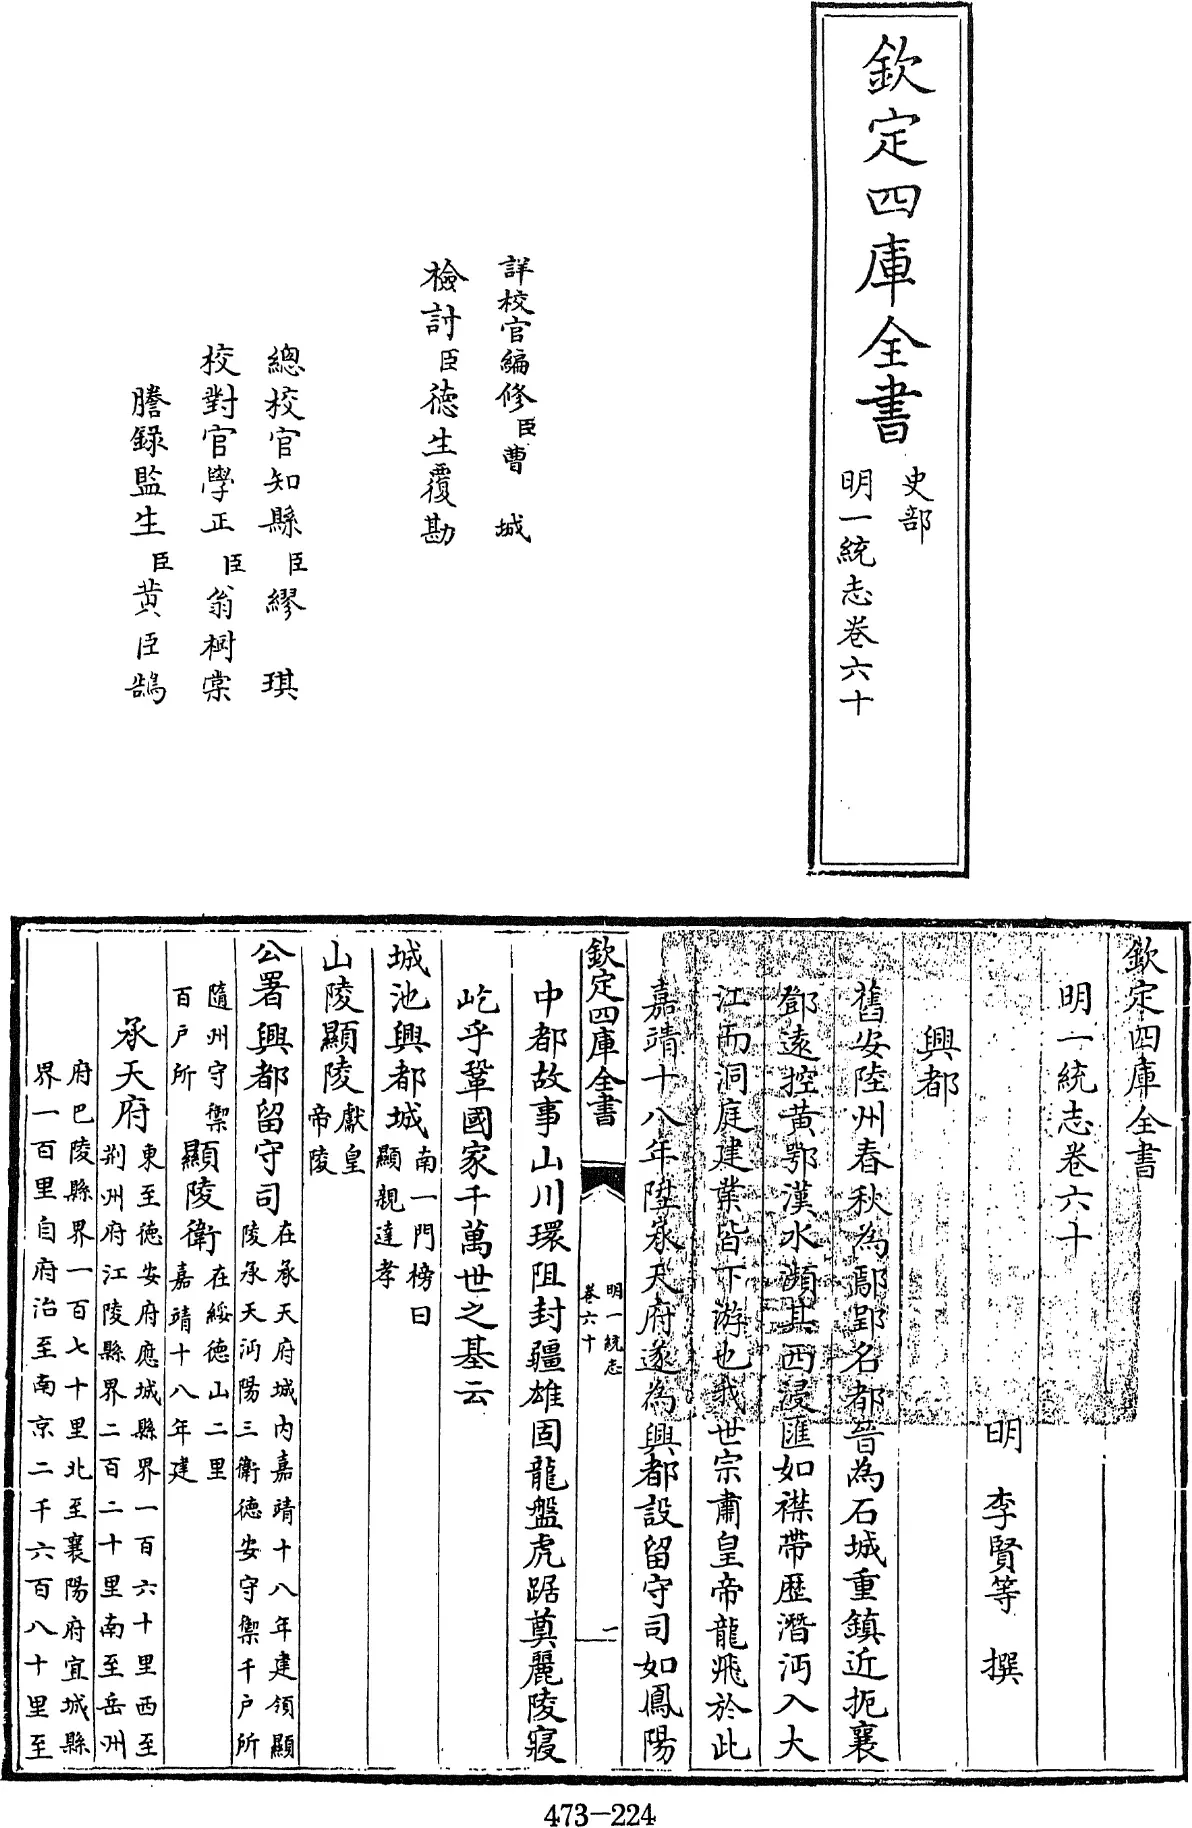 欽定四庫全書
史部
明一統志卷六十
詳校官編修臣曹城
檢討臣德生覆勘
總校官知縣臣繆琪
校對官學正臣翁樹棠
謄錄監生臣黄臣鵠
欽定四庫全書
明一統志卷六十
明 李賢等 撰
興都
舊安陸州春秋為鄖郢名都晉為石城重鎮近扼襄
鄧遠控黄鄂漢水瀕其西浸匯如襟帶歴潛沔入大
江而洞庭建業皆下游也我世宗肅皇帝龍飛於此
嘉靖十八年陞承天府遂為興都設留守司如鳳陽
欽定四庫全書
明一統志
卷六十
一
中都故事山川環阻封疆雄固龍盤虎踞奠麗陵寢
屹乎鞏國家千萬世之基云
城池興都城南一門榜曰
顯親達孝
山陵顯陵獻皇
帝陵
公署興都留守司在承天府城内嘉靖十八年建領顯
陵承天沔陽三衛德安守禦千户所
隨州守禦
百户所
顯陵衛在綏德山二里
嘉靖十八年建
承天府東至德安府應城縣界一百六十里西至
荆州府江陵縣界二百二十里南至岳州
府巴陵縣界一百七十里北至襄陽府宜城縣
界一百里自府治至南京二千六百八十里至
473-224